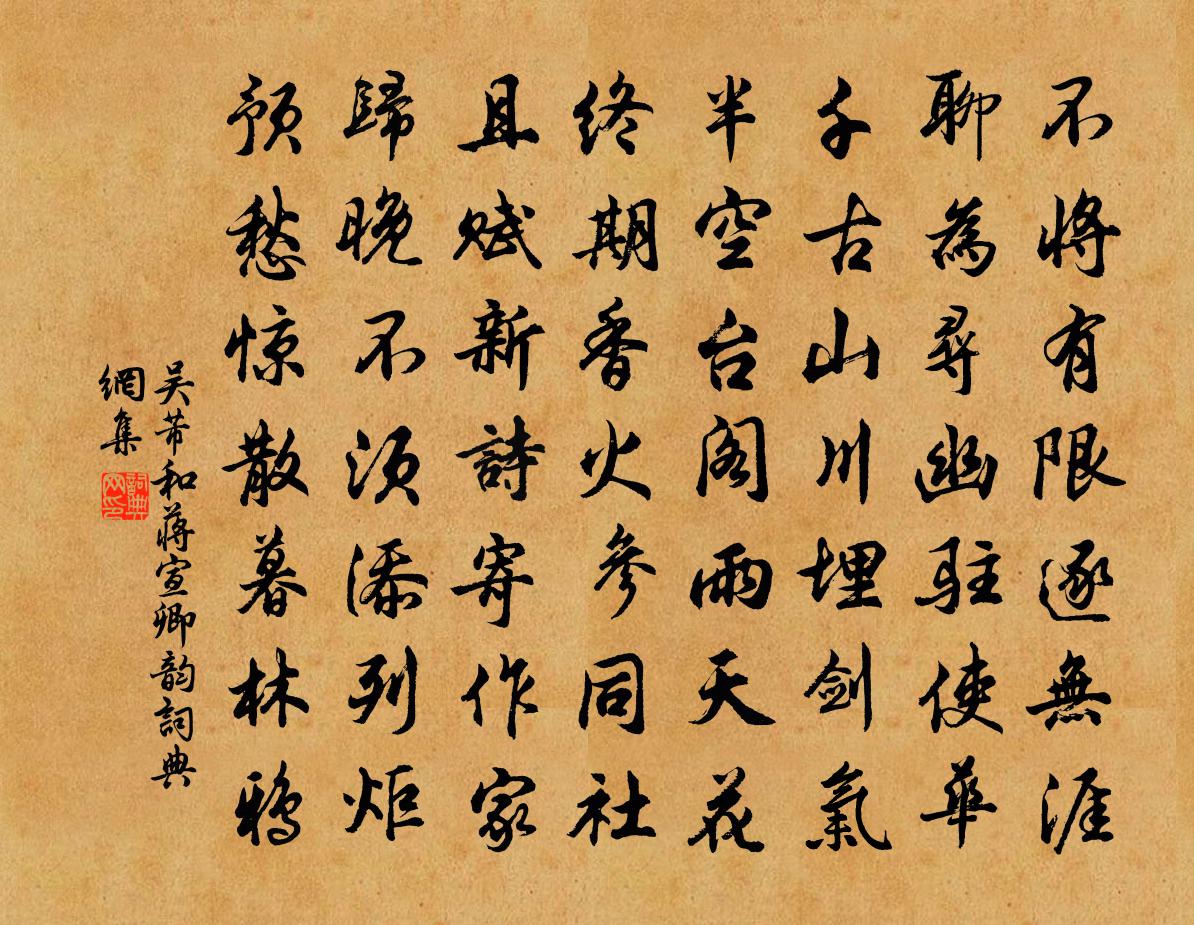 不將有限逐無涯
聊為尋幽駐使華
千古山川埋劍氣
半空台閣雨天花
終期香火參同社
且賦新詩寄作家
歸晚不須添列炬
預愁惊散暮林鴉
吳芾和蔣宣卿韵詞典
網集
詞典
网印